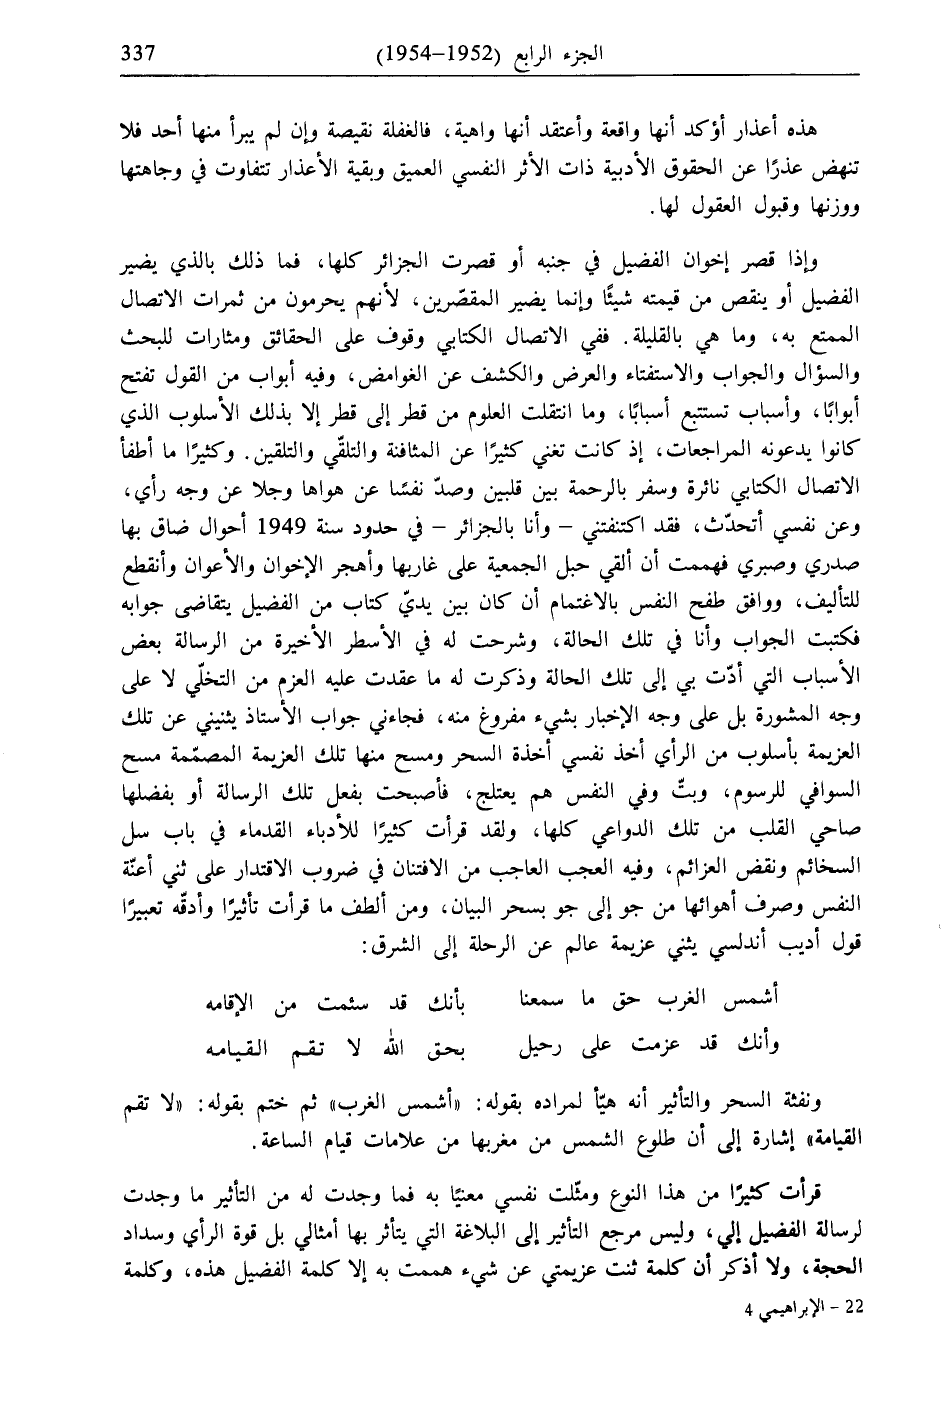 337 الجزء الرابع (1952-1954)
هذه أعذار أؤكد أنها واقعة وأعتقد أنها واهية، فالغفلة نقيصة وإن لم يبرأ منها أحد فلا
تنهض عذرًا عن الحقوق الأدبية ذات الأثر النفسي العميق وبقية الأعذار تتفاوت في وجاهتها
ووزنها وقبول العقول لها.
وإذا قصر إخوان الفضيل في جنبه أو قصرت الجزائر كلها، فما ذلك بالذي يضير
الفضيل أو ينقص من قيمته شيئًا وإنما يضير المقصّرين، لأنهم يحرمون من ثمرات الاتصال
الممتع به، وما هي بالقليلة. ففي الاتصال الكتابي وقوف على الحقائق ومثارات للبحث
والسؤال والجواب والاستفتاء والعرض والكشف عن الغوامض، وفيه أبواب من القول تفتح
أبوابًا، وأسباب تستتبع أسبابًا، وما انتقلت العلوم من قطر إلى قطر إلا بذلك الأسلوب الذي
كانوا يدعونه المراجعات، إذ كانت تغني كثيرًا عن المثافنة والتلقّي والتلقين. وكثيرًا ما أطفأ
الاتصال الكتابي نائرة وسفر بالرحمة بين قلبين وصدّ نفسًا عن هواها وجلا عن وجه رأي،
وعن نفسي أتحدّث، فقد اكتنفتني - وأنا بالجزائر - في حدود سنة 1949 أحوال ضاق بها
صدري وصبري فهممت أن ألقي حبل الجمعية على غاربها وأهجر الإخوان والأعوان وأنقطع
للتأليف، ووافق طفح النفس بالاغتمام أن كان بين يديّ كتاب من الفضيل يتقاضى جوابه
فكتبت الجواب وأنا في تلك الحالة، وشرحت له في الأسطر الأخيرة من الرسالة بعض
الأسباب التي أدّت بي إلى تلك الحالة وذكرت له ما عقدت عليه العزم من التخلّي لا على
وجه المشورة بل على وجه الإخبار بشيء مفروغ منه، فجاءني جواب الأستاذ يثنيني عن تلك
العزيمة بأسلوب من الرأي أخذ نفسي أخذة السحر ومسح منها تلك العزيمة المصمّمة مسح
السوافي للرسوم، وبتّ وفي النفس هم يعتلج، فأصبحت بفعل تلك الرسالة أو بفضلها
صاحي القلب من تلك الدواعي كلها، ولقد قرأت كثيرًا للأدباء القدماء في باب سل
السخائم ونقض العزائم، وفيه العجب العاجب من الافتنان في ضروب الاقتدار على ثني أعنّة
النفس وصرف أهوائها من جو إلى جو بسحر البيان، ومن ألطف ما قرأت تأثيرًا وأدقّه تعبيرًا
قول أديب أندلسي يثني عزيمة عالم عن الرحلة إلى الشرق:
أشمس الغرب حق ما سمعنا بأنك قد سئمت من الإقامه
وأنك قد عزمت على رحيل بحق الله لا تقم القيامه
ونفثة السحر والتأثير أنه هيّأ لمراده بقوله: «أشمس الغرب» ثم ختم بقوله: «لا تقم
القيامة» إشارة إلى أن طلوع الشمس من مغربها من علامات قيام الساعة.
قرأت كثيرًا من هذا النوع ومثّلت نفسي معنيًا به فما وجدت له من التأثير ما وجدت
لرسالة الفضيل إلي، وليس مرجع التأثير إلى البلاغة التي يتأثر بها أمثالي بل قوة الرأي وسداد
الحجة، ولا أذكر أن كلمة ثنت عزيمتي عن شيء هممت به إلا كلمة الفضيل هذه، وكلمة
22 - الإبراهيمي 4